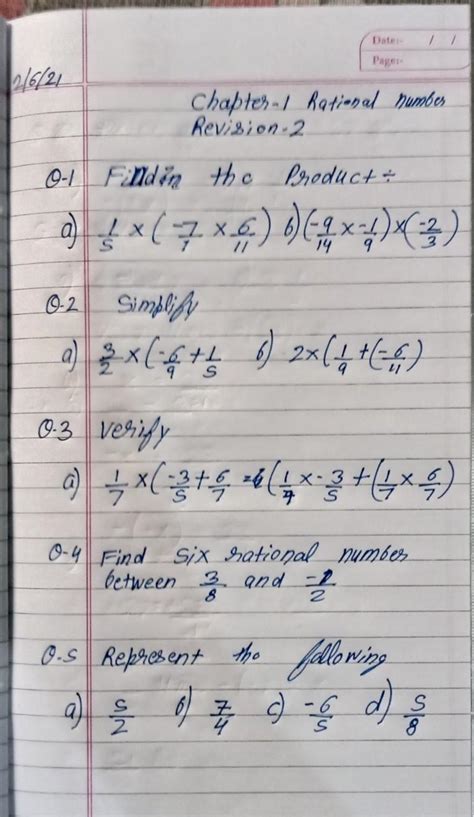 Date:- / /
Page:-
2/6/21
Chapter-1 Rational number
Revision-2
Q-1 Find in the Product ÷
a) 1/5 × (-7/1 × 6/11) b) (-9/14 × -1/9) × (-2/3)
Q-2 Simplify
a) 3/2 × (-6/9 + 1/5 b) 2 × (1/9 + (-6/11)
Q.3 Verify
a) 1/7 × (-3/5 + 6/7 = (1/7 × -3/5 + (1/7 × 6/7)
Q-4 Find six rational number
between 3/8 and -1/2
Q.5 Represent the following
a) 5/2 b) 7/4 c) -6/5 d) 5/8